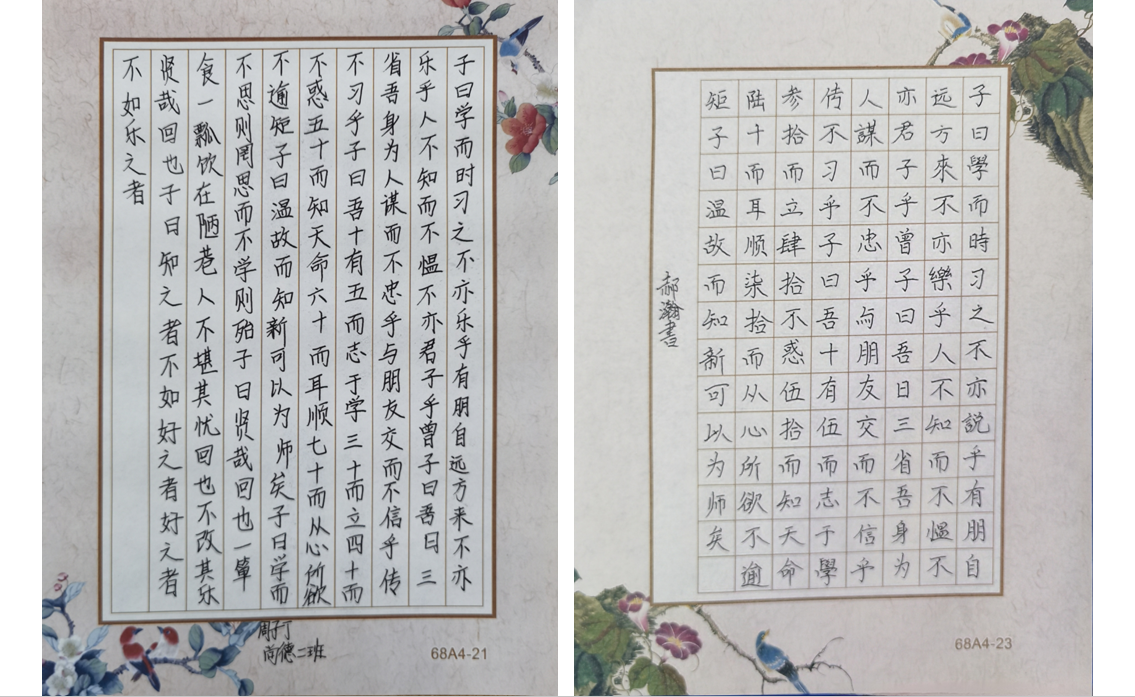 子曰学而时习之不亦乐乎有朋自远方来不亦
乐乎人不知而不愠不亦君子乎曾子曰吾日三
省吾身为人谋而不忠乎与朋友交而不信乎传
不习乎子曰吾十有五而志于学三十而立四十而
不惑五十而知天命六十而耳顺七十而从心所欲
不逾矩子曰温故而知新可以为师矣子曰学而
不思则罔思而不学则殆子曰贤哉回也一箪
食一瓢饮在陋巷人不堪其忧回也不改其乐
贤哉回也子曰知之者不如好之者好之者
不如乐之者
周子丁
尚德二班
68A4-21
子曰學而時习之不亦説乎有朋自
远方來不亦樂乎人不知而不愠不
亦君子乎曾子曰吾日三省吾身为
人謀而不忠乎与朋友交而不信乎
传不习乎子曰吾十有伍而志于學
参拾而立肆拾不惑伍拾而知天命
陆十而耳顺柒拾而从心所欲不逾
矩子曰温故而知新可以为师矣
郝瀚書
68A4-23